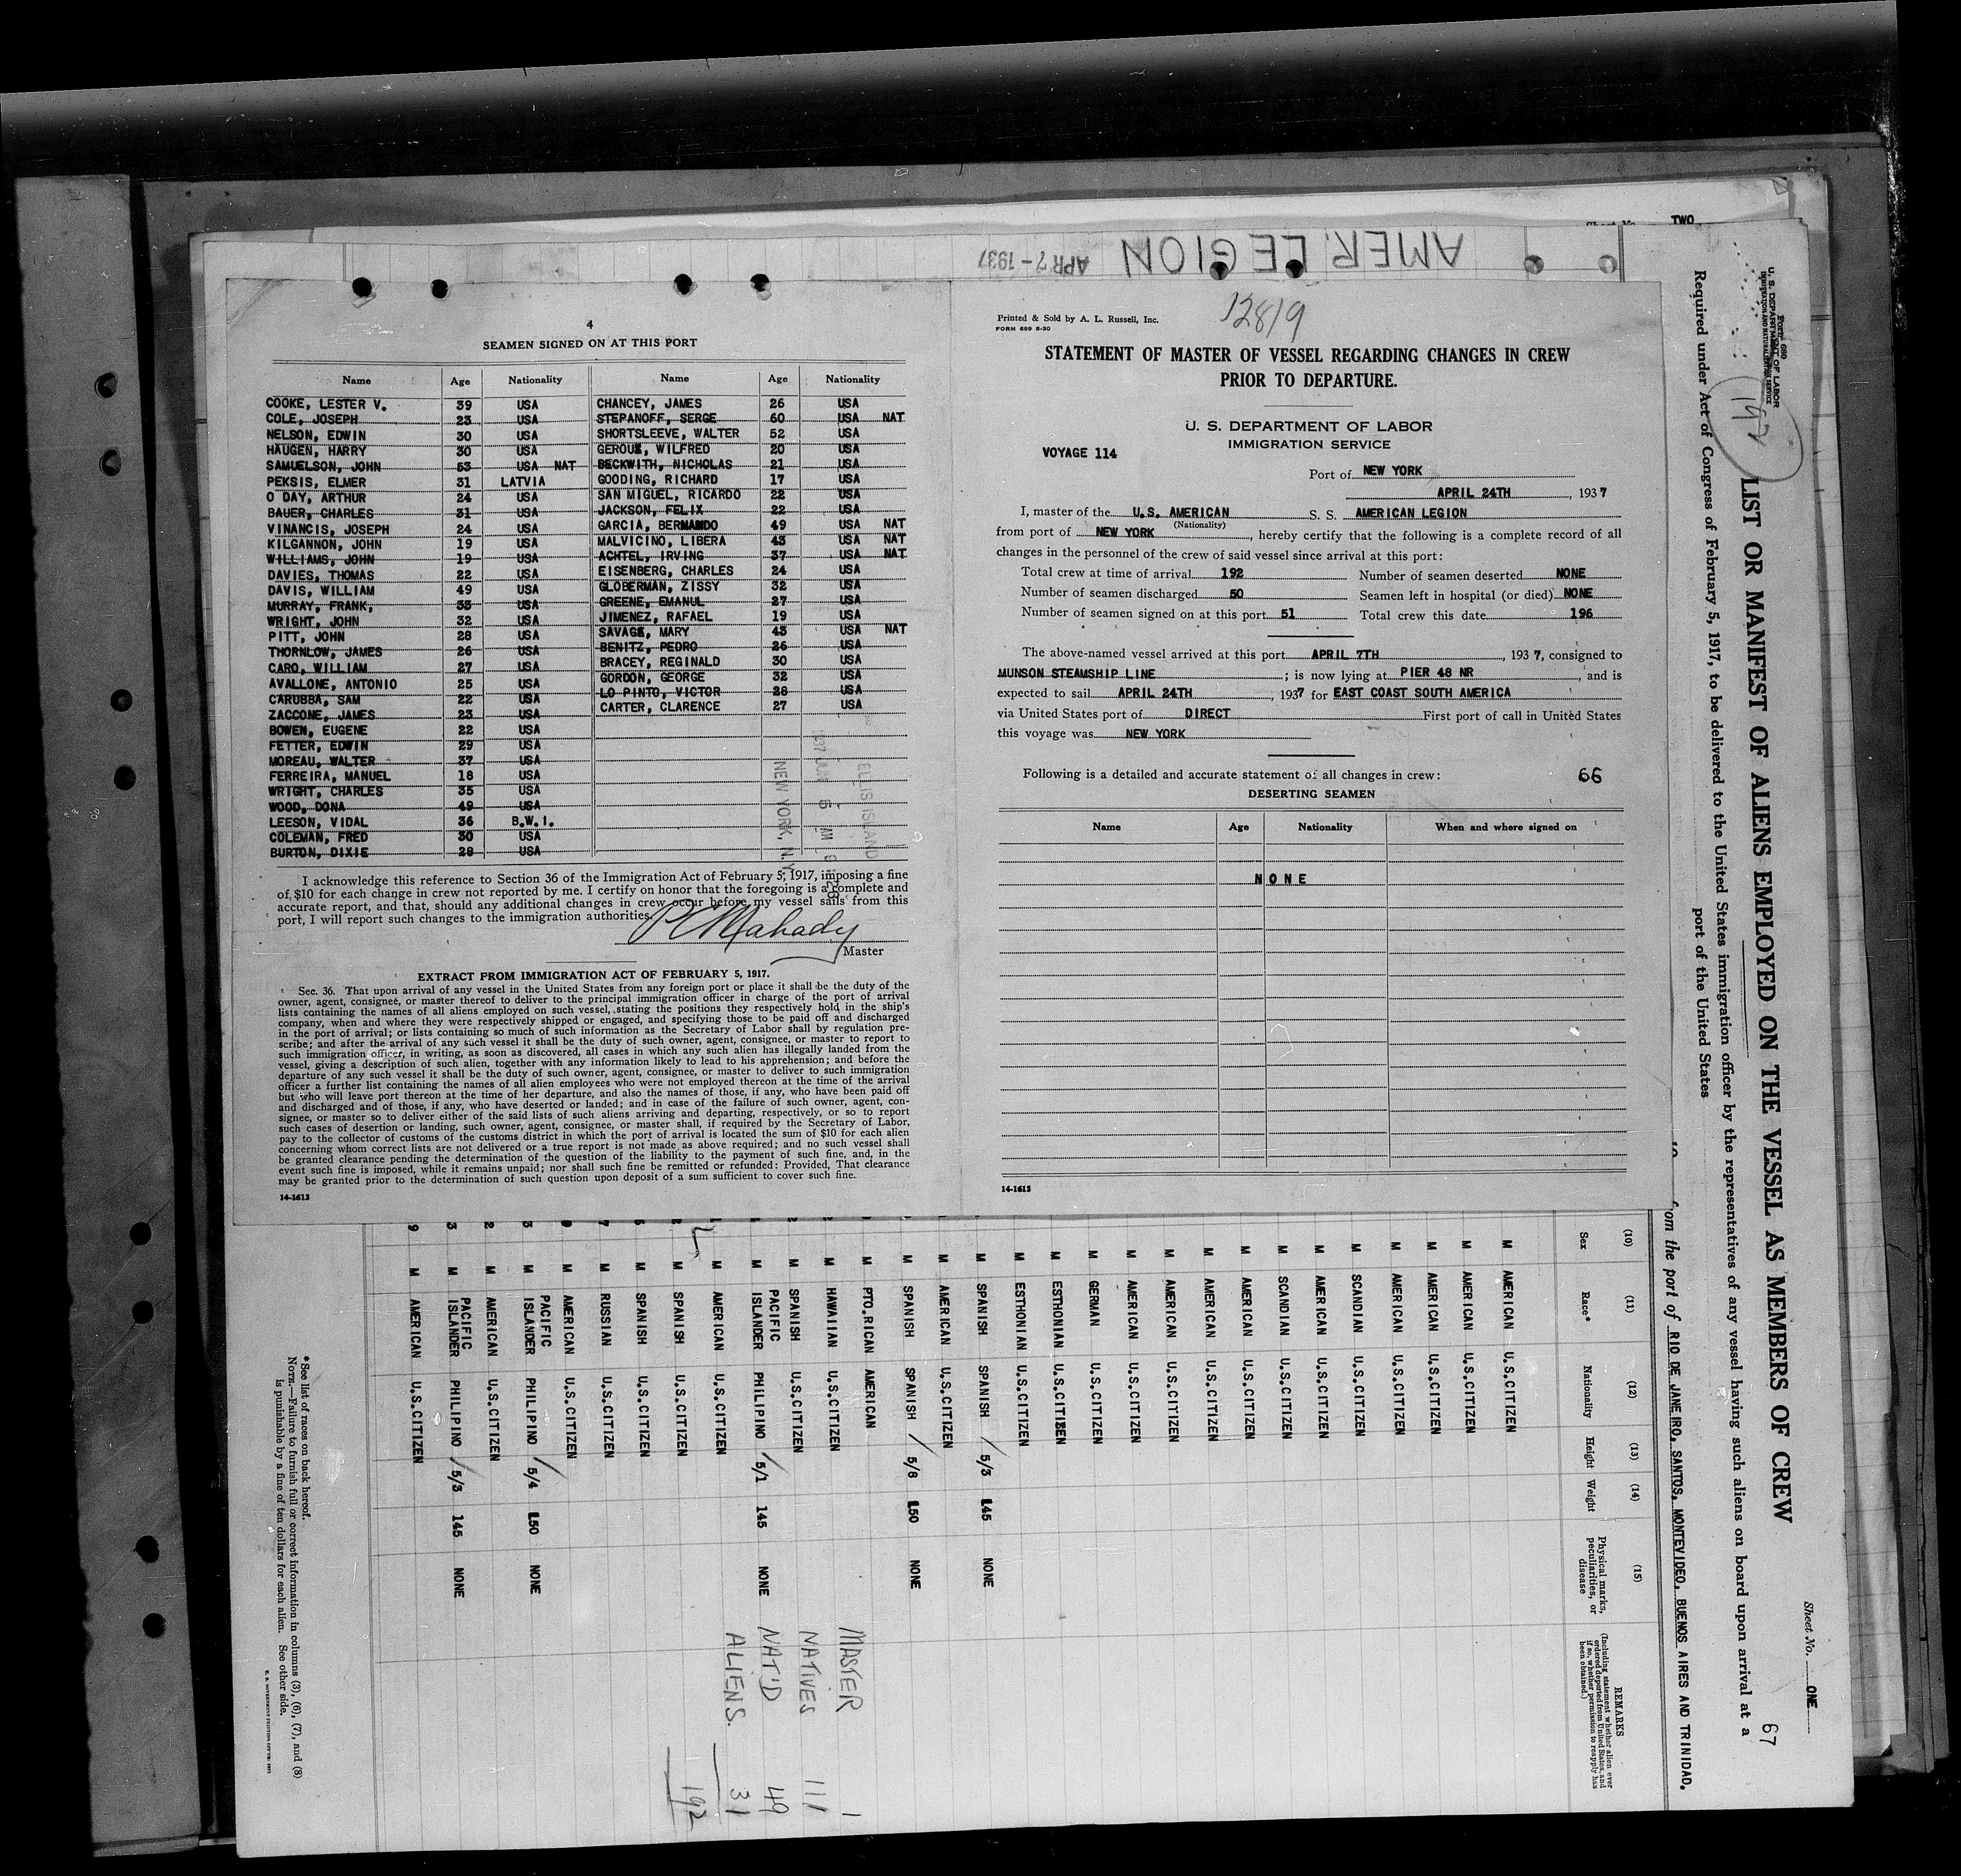 TWO
AMER. LEGION
APR 7 - 1937
4
SEAMEN SIGNED ON AT THIS PORT
Name Age Nationality Name Age Nationality
COOKE, LESTER V. 39 USA CHANCEY, JAMES 26 USA
COLE, JOSEPH 23 USA STEPANOFF, SERGE 60 USA NAT
NELSON, EDWIN 30 USA SHORTSLEEVE, WALTER 52 USA
HAUGEN, HARRY 30 USA GEROUX, WILFRED 20 USA
SAMUELSON, JOHN 53 USA NAT BECKWITH, NICHOLAS 21 USA
PEKSIS, ELMER 31 LATVIA GOODING, RICHARD 17 USA
O DAY, ARTHUR 24 USA SAN MIGUEL, RICARDO 22 USA
BAUER, CHARLES 31 USA JACKSON, FELIX 22 USA
VINANCIS, JOSEPH 24 USA GARCIA, BERNANDO 49 USA NAT
KILGANNON, JOHN 19 USA MALVICINO, LIBERA 43 USA NAT
WILLIAMS, JOHN 19 USA ACHTEL, IRVING 37 USA NAT
DAVIES, THOMAS 22 USA EISENBERG, CHARLES 24 USA
DAVIS, WILLIAM 49 USA GLOBERMAN, ZISSY 32 USA
MURRAY, FRANK, 33 USA GREENE, EMANUL 27 USA
WRIGHT, JOHN 32 USA JIMENEZ, RAFAEL 19 USA
PITT, JOHN 28 USA SAVAGE, MARY 43 USA NAT
THORNLOW, JAMES 26 USA BENITZ, PEDRO 26 USA
CARO, WILLIAM 27 USA BRACEY, REGINALD 30 USA
AVALLONE, ANTONIO 25 USA GORDON, GEORGE 32 USA
CARUBBA, SAM 22 USA LO PINTO, VICTOR 28 USA
ZACCONE, JAMES 23 USA CARTER, CLARENCE 27 USA
BOWEN, EUGENE 22 USA
FETTER, EDWIN 29 USA
MOREAU, WALTER 37 USA
FERREIRA, MANUEL 18 USA
WRIGHT, CHARLES 35 USA
WOOD, DONA 49 USA
LEESON, VIDAL 36 B.W.I.
COLEMAN, FRED 30 USA
BURTON, DIXIE 28 USA
ELLIS ISLAND
NEW YORK, N.Y.
I acknowledge this reference to Section 36 of the Immigration Act of February 5, 1917, imposing a fine
of $10 for each change in crew not reported by me. I certify on honor that the foregoing is a complete and
accurate report, and that, should any additional changes in crew occur before my vessel sails from this
port, I will report such changes to the immigration authorities.
Mahady
Master
EXTRACT FROM IMMIGRATION ACT OF FEBRUARY 5, 1917.
Sec. 36. That upon arrival of any vessel in the United States from any foreign port or place it shall be the duty of the
owner, agent, consignee, or master thereof to deliver to the principal immigration officer in charge of the port of arrival
lists containing the names of all aliens employed on such vessel, stating the positions they respectively hold in the ship's
company, when and where they were respectively shipped or engaged, and specifying those to be paid off and discharged
in the port of arrival; or lists containing so much of such information as the Secretary of Labor shall by regulation pre-
scribe; and after the arrival of any such vessel it shall be the duty of such owner, agent, consignee, or master to report to
such immigration officer, in writing, as soon as discovered, all cases in which any such alien has illegally landed from the
vessel, giving a description of such alien, together with any information likely to lead to his apprehension; and before the
departure of any such vessel it shall be the duty of such owner, agent, consignee, or master to deliver to such immigration
officer a further list containing the names of all alien employees who were not employed thereon at the time of the arrival
but who will leave port thereon at the time of her departure, and also the names of those, if any, who have been paid off
and discharged and of those, if any, who have deserted or landed; and in case of the failure of such owner, agent, con-
signee, or master so to deliver either of the said lists of such aliens arriving and departing, respectively, or so to report
such cases of desertion or landing, such owner, agent, consignee, or master shall, if required by the Secretary of Labor,
pay to the collector of customs of the customs district in which the port of arrival is located the sum of $10 for each alien
concerning whom correct lists are not delivered or a true report is not made as above required; and no such vessel shall
be granted clearance pending the determination of the question of the liability to the payment of such fine, and, in the
event such fine is imposed, while it remains unpaid; nor shall such fine be remitted or refunded: Provided, That clearance
may be granted prior to the determination of such question upon deposit of a sum sufficient to cover such fine.
14-1613
Printed & Sold by A. L. Russell, Inc.
FORM 689 8-30
12819
STATEMENT OF MASTER OF VESSEL REGARDING CHANGES IN CREW
PRIOR TO DEPARTURE.
U. S. DEPARTMENT OF LABOR
IMMIGRATION SERVICE
VOYAGE 114
Port of NEW YORK
APRIL 24TH, 1937
I, master of the U.S. AMERICAN S. S. AMERICAN LEGION
(Nationality)
from port of NEW YORK, hereby certify that the following is a complete record of all
changes in the personnel of the crew of said vessel since arrival at this port:
Total crew at time of arrival 192 Number of seamen deserted NONE
Number of seamen discharged 50 Seamen left in hospital (or died) NONE
Number of seamen signed on at this port 51 Total crew this date 196
The above-named vessel arrived at this port APRIL 7TH, 1937, consigned to
MUNSON STEAMSHIP LINE; is now lying at PIER 48 NR, and is
expected to sail APRIL 24TH, 1937 for EAST COAST SOUTH AMERICA
via United States port of DIRECT First port of call in United States
this voyage was NEW YORK
Following is a detailed and accurate statement of all changes in crew: 66
DESERTING SEAMEN
Name Age Nationality When and where signed on
NONE
14-1613
Form 680
U. S. DEPARTMENT OF LABOR
IMMIGRATION AND NATURALIZATION SERVICE
192
Sheet No. ONE
67
LIST OR MANIFEST OF ALIENS EMPLOYED ON THE VESSEL AS MEMBERS OF CREW
Required under Act of Congress of February 5, 1917, to be delivered to the United States immigration officer by the representatives of any vessel having such aliens on board upon arrival at a
port of the United States
from the port of RIO DE JANEIRO, SANTOS, MONTEVIDEO, BUENOS AIRES AND TRINIDAD.
(10) (11) (12) (13) (14) (15)
Sex Race* Nationality Height Weight Physical marks, peculiarities, or disease REMARKS
(Including statement whether alien ever ordered deported from United States, and if so, whether permission to reapply has been obtained.)
M AMERICAN U.S.CITIZEN
M AMERICAN U.S.CITIZEN
M AMERICAN U.S.CITIZEN
M AMERICAN U.S.CITIZEN
M SCANDIAN U.S.CITIZEN
M AMERICAN U.S.CITIZEN
M SCANDIAN U.S.CITIZEN
M AMERICAN U.S.CITIZEN
M AMERICAN U.S.CITIZEN
M AMERICAN U.S.CITIZEN
M AMERICAN U.S.CITIZEN
M GERMAN U.S.CITIZEN
M ESTHONIAN U.S.CITIZEN
M ESTHONIAN U.S.CITIZEN
M SPANISH SPANISH / 5/3 145 NONE
M AMERICAN U.S.CITIZEN
M SPANISH SPANISH / 5/8 150 NONE
M PTO.RICAN AMERICAN
M HAWAIIAN U.S.CITIZEN
M SPANISH U.S.CITIZEN
M PACIFIC ISLANDER PHILIPINO / 5/1 145 NONE
M AMERICAN U.S.CITIZEN
M SPANISH U.S.CITIZEN
M SPANISH U.S.CITIZEN
M RUSSIAN U.S.CITIZEN
M AMERICAN U.S.CITIZEN
M PACIFIC ISLANDER PHILIPINO / 5/4 150 NONE
M AMERICAN U.S.CITIZEN
M PACIFIC ISLANDER PHILIPINO / 5/3 145 NONE
M AMERICAN U.S.CITIZEN
MASTER 1
NATIVES 111
NAT'D 49
ALIENS. 31
192
*See list of races on back hereof.
NOTE.—Failure to furnish full or correct information in columns (3), (6), (7), and (8)
is punishable by a fine of ten dollars for each alien. See other side.